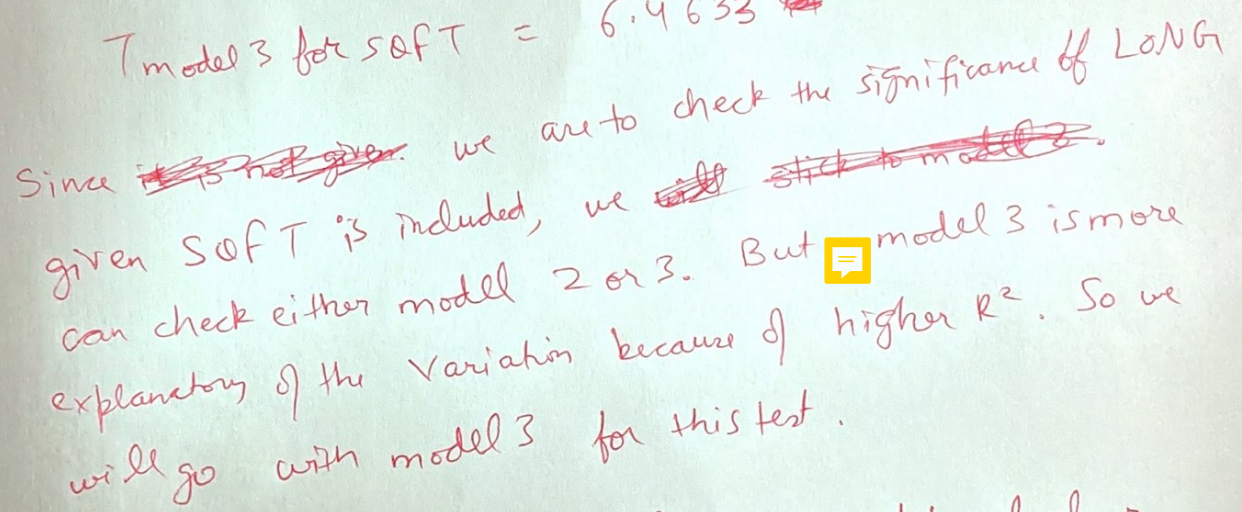 T model 3 for SQFT = 6.4633
Since we are to check the significance of LONG
given SQFT is included, we
can check either model 2 or 3. But model 3 is more
explanatory of the variation because of higher R².  So we
will go with model 3 for this test.